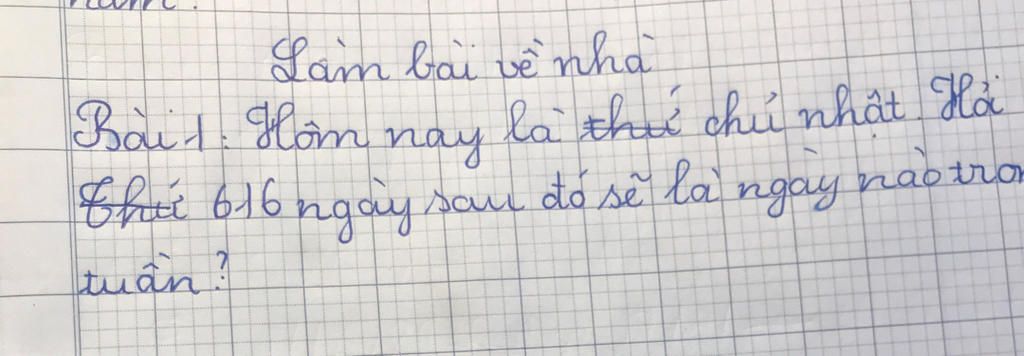 Làm bài về nhà
Bài 1: Hôm nay là thứ chủ nhật. Hỏi
thứ 616 ngày sau đó sẽ là ngày nào tro
tuần?